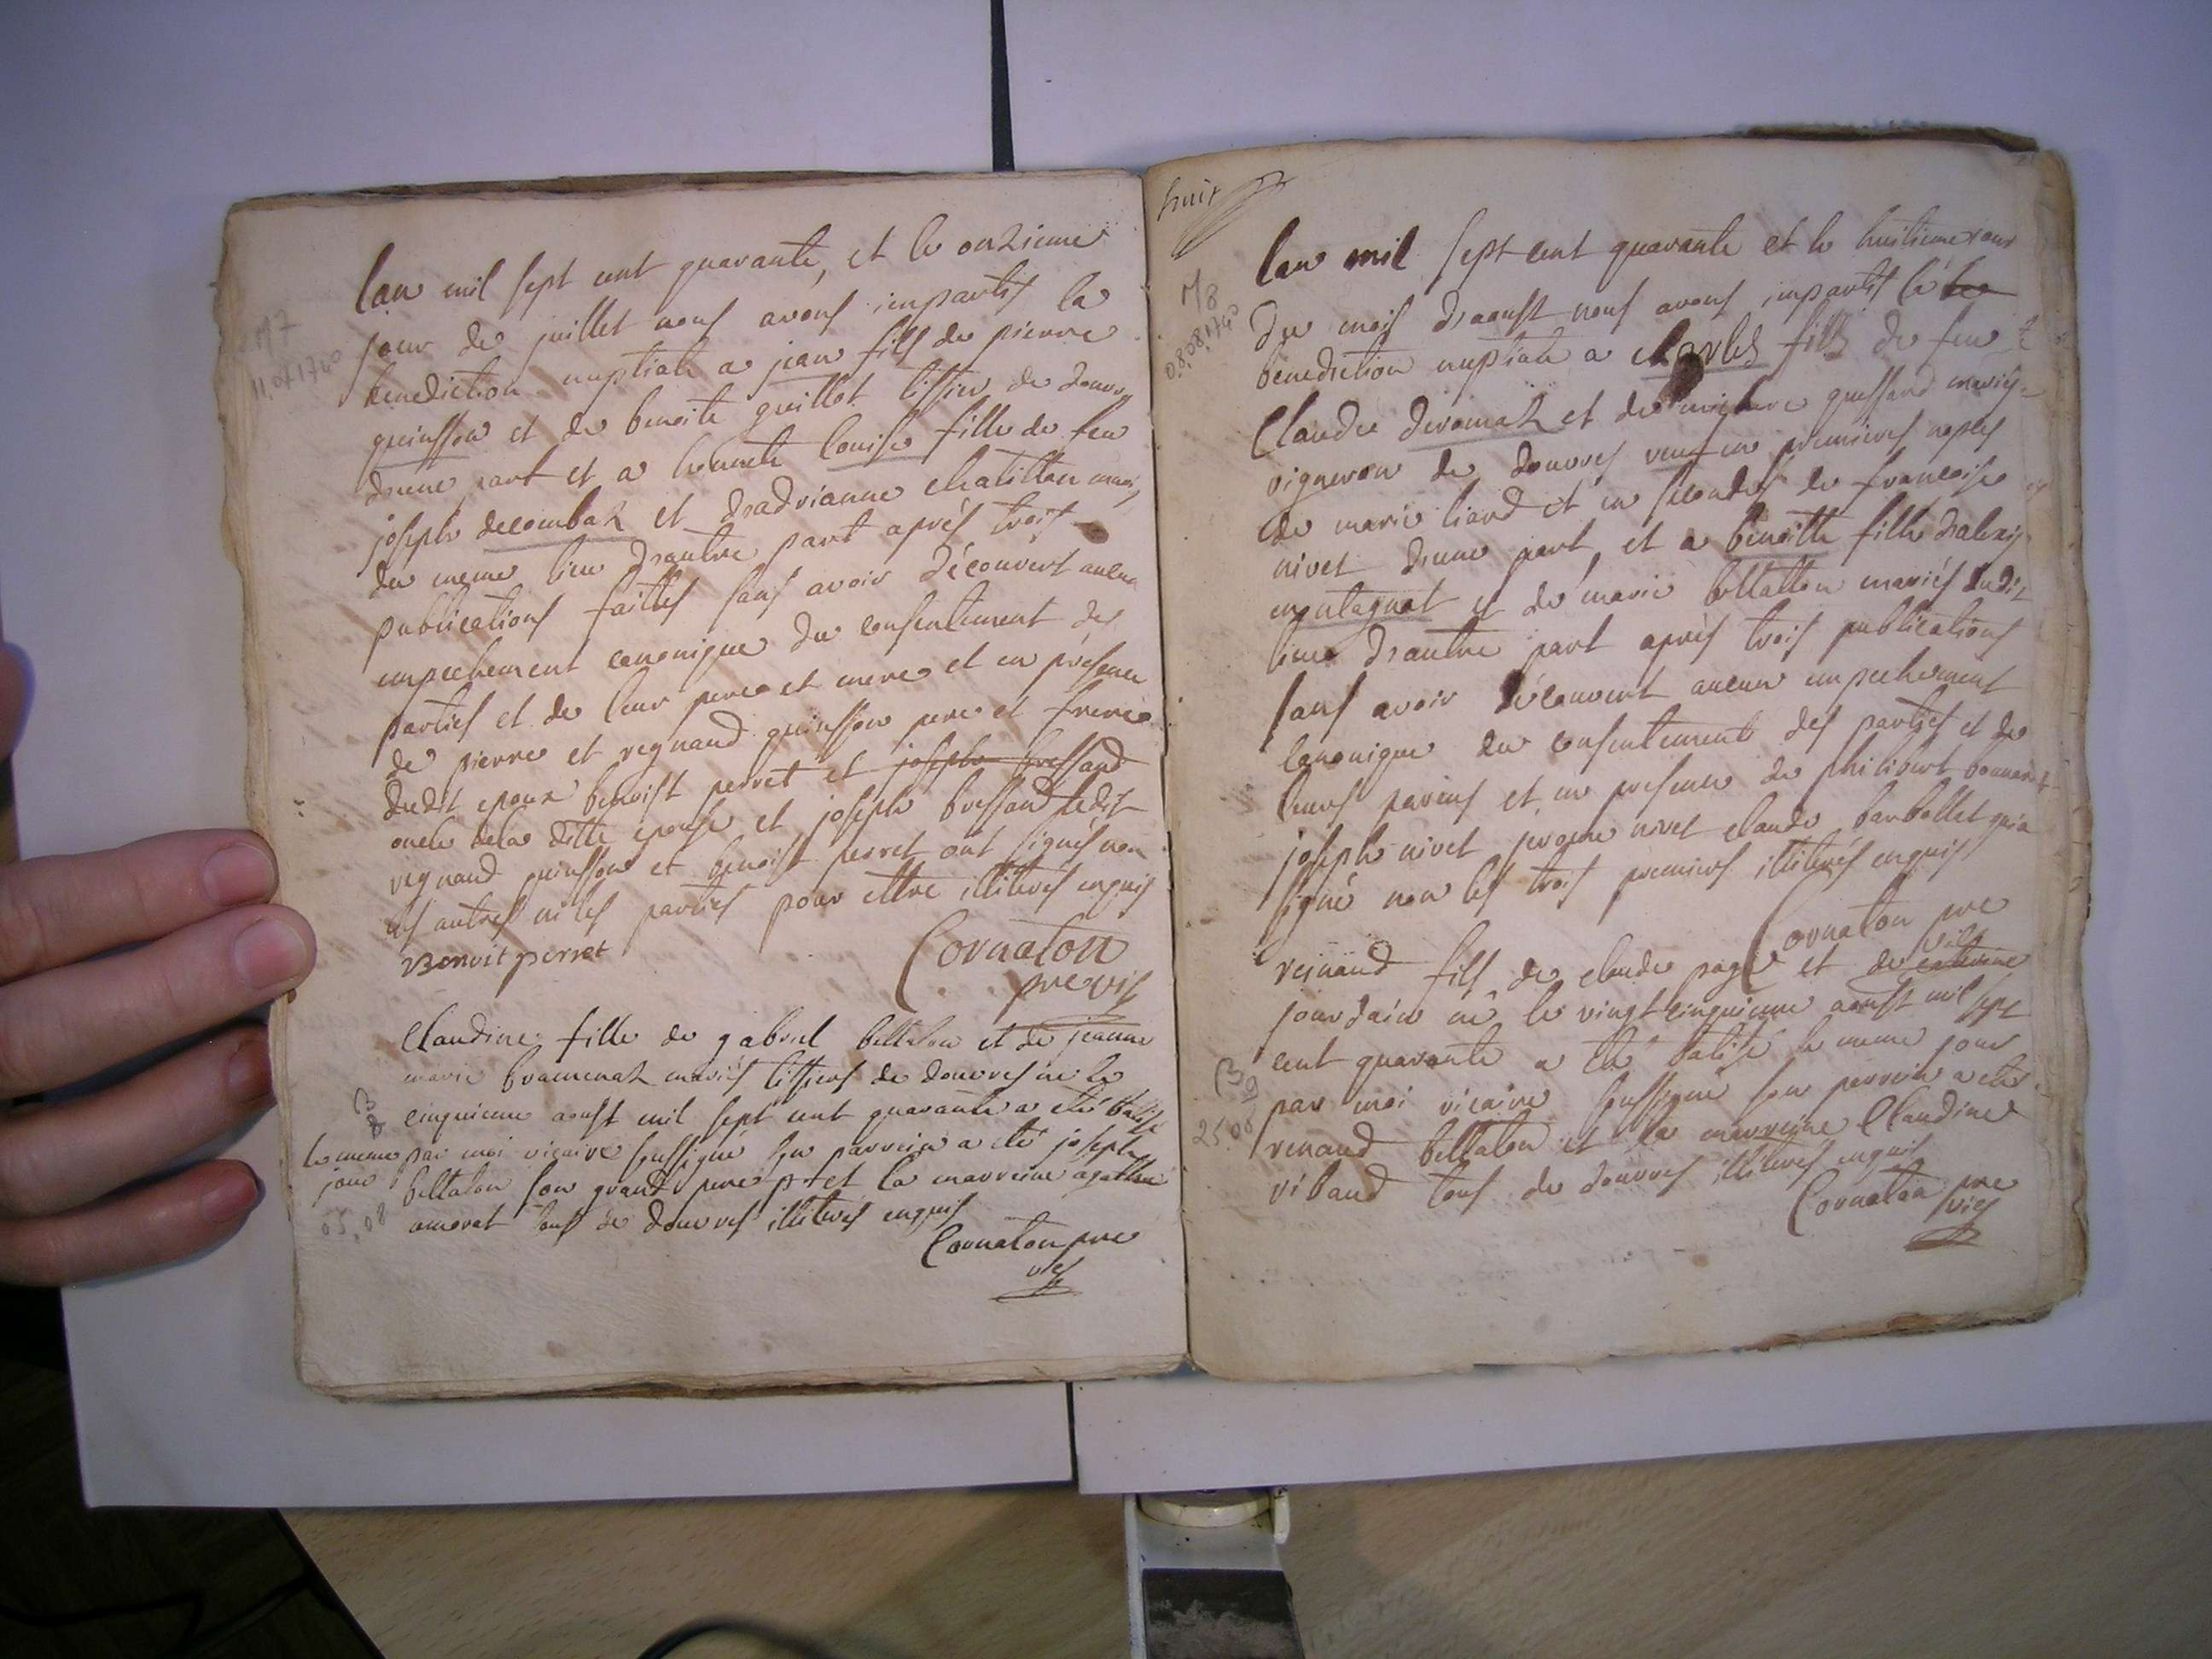 lan mil sept cent quarante, et le onzieme
jour de juillet nous avons impartis la
benediction nuptiale a jean fils de pierre
quinsson et de benoite guillot tissier de douvre
d'une part et a honnete louise fille de feu
joseph decombaz et d'adrianne chatillon mariés
du meme lieu d'autre part aprés trois
publications faittes sans avoir découvert aucun
empechement canonique du consentement des
parties et de leur pere et mere et en présence
de pierre et regnaud quinsson pere et frere
dudit epoux benoist perret et joseph bressand
oncle de la ditte epouse et joseph bressand ledit
regnaud quinsson et benoist perret ont signés non
les autres ni les parties pour ettre illiterés enquis
Benoit perret
Cornaton
pre vis
M7
11.07.1740
Claudine fille de gabriel bellaton et de jeanne
marie bramenaz mariés tissiers de douvres née le
cinquieme aoust mil sept cent quarante a eté batisée
le meme par moi vicaire soussigné son parrein a eté joseph
jour bellaton son grand pere pt et la marreine agathe
amorat tous de douvres illiterés enquis
Cornaton pre
vis
B
05.08
huit
M8
08.08.1740
lan mil sept cent quarante et le huitieme jour
du mois d'aoust nous avons impartis la
benediction nuptiale a charles fils de feu
Claude deromaz et de guissard mariés
vigneron de douvres veuf en premieres nopces
de marie liard et en secondes de francoise
nivet d'une part, et a benoitte fille d'alexis
montagnat et de marie bellatton mariés dudit
lieu d'autre part aprés trois publications
sans avoir découvert aucun empechement
canonique du consentement des parties et de
leurs parens et en presence de philibert
joseph nivet jerome nivet claude barbollet qui a
signé non les trois premiers illiterés enquis
Cornaton pre
vis
reinand fils de claude page et de catherine
jourdain né le vingt cinquieme aoust mil sept
cent quarante a eté batisé le meme jour
par moi vicaire soussigné son parrein a eté
renaud bellaton et la marreine Claudine
ribaud tous de douvres illiterés enquis
Cornaton pre
vis
B
25.08